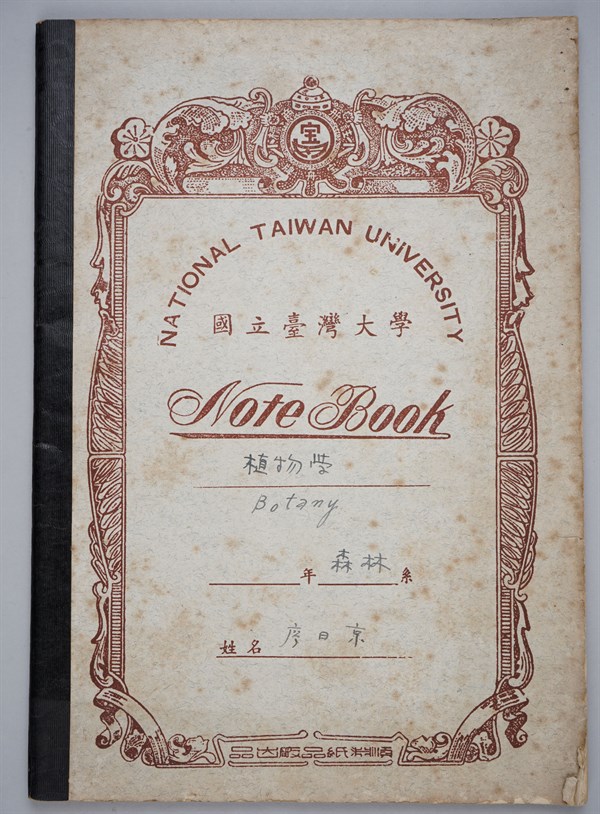 NATIONAL TAIWAN UNIVERSITY
國立臺灣大學
Note Book
植物学
Botany
年 森林 系
姓名 廖日京